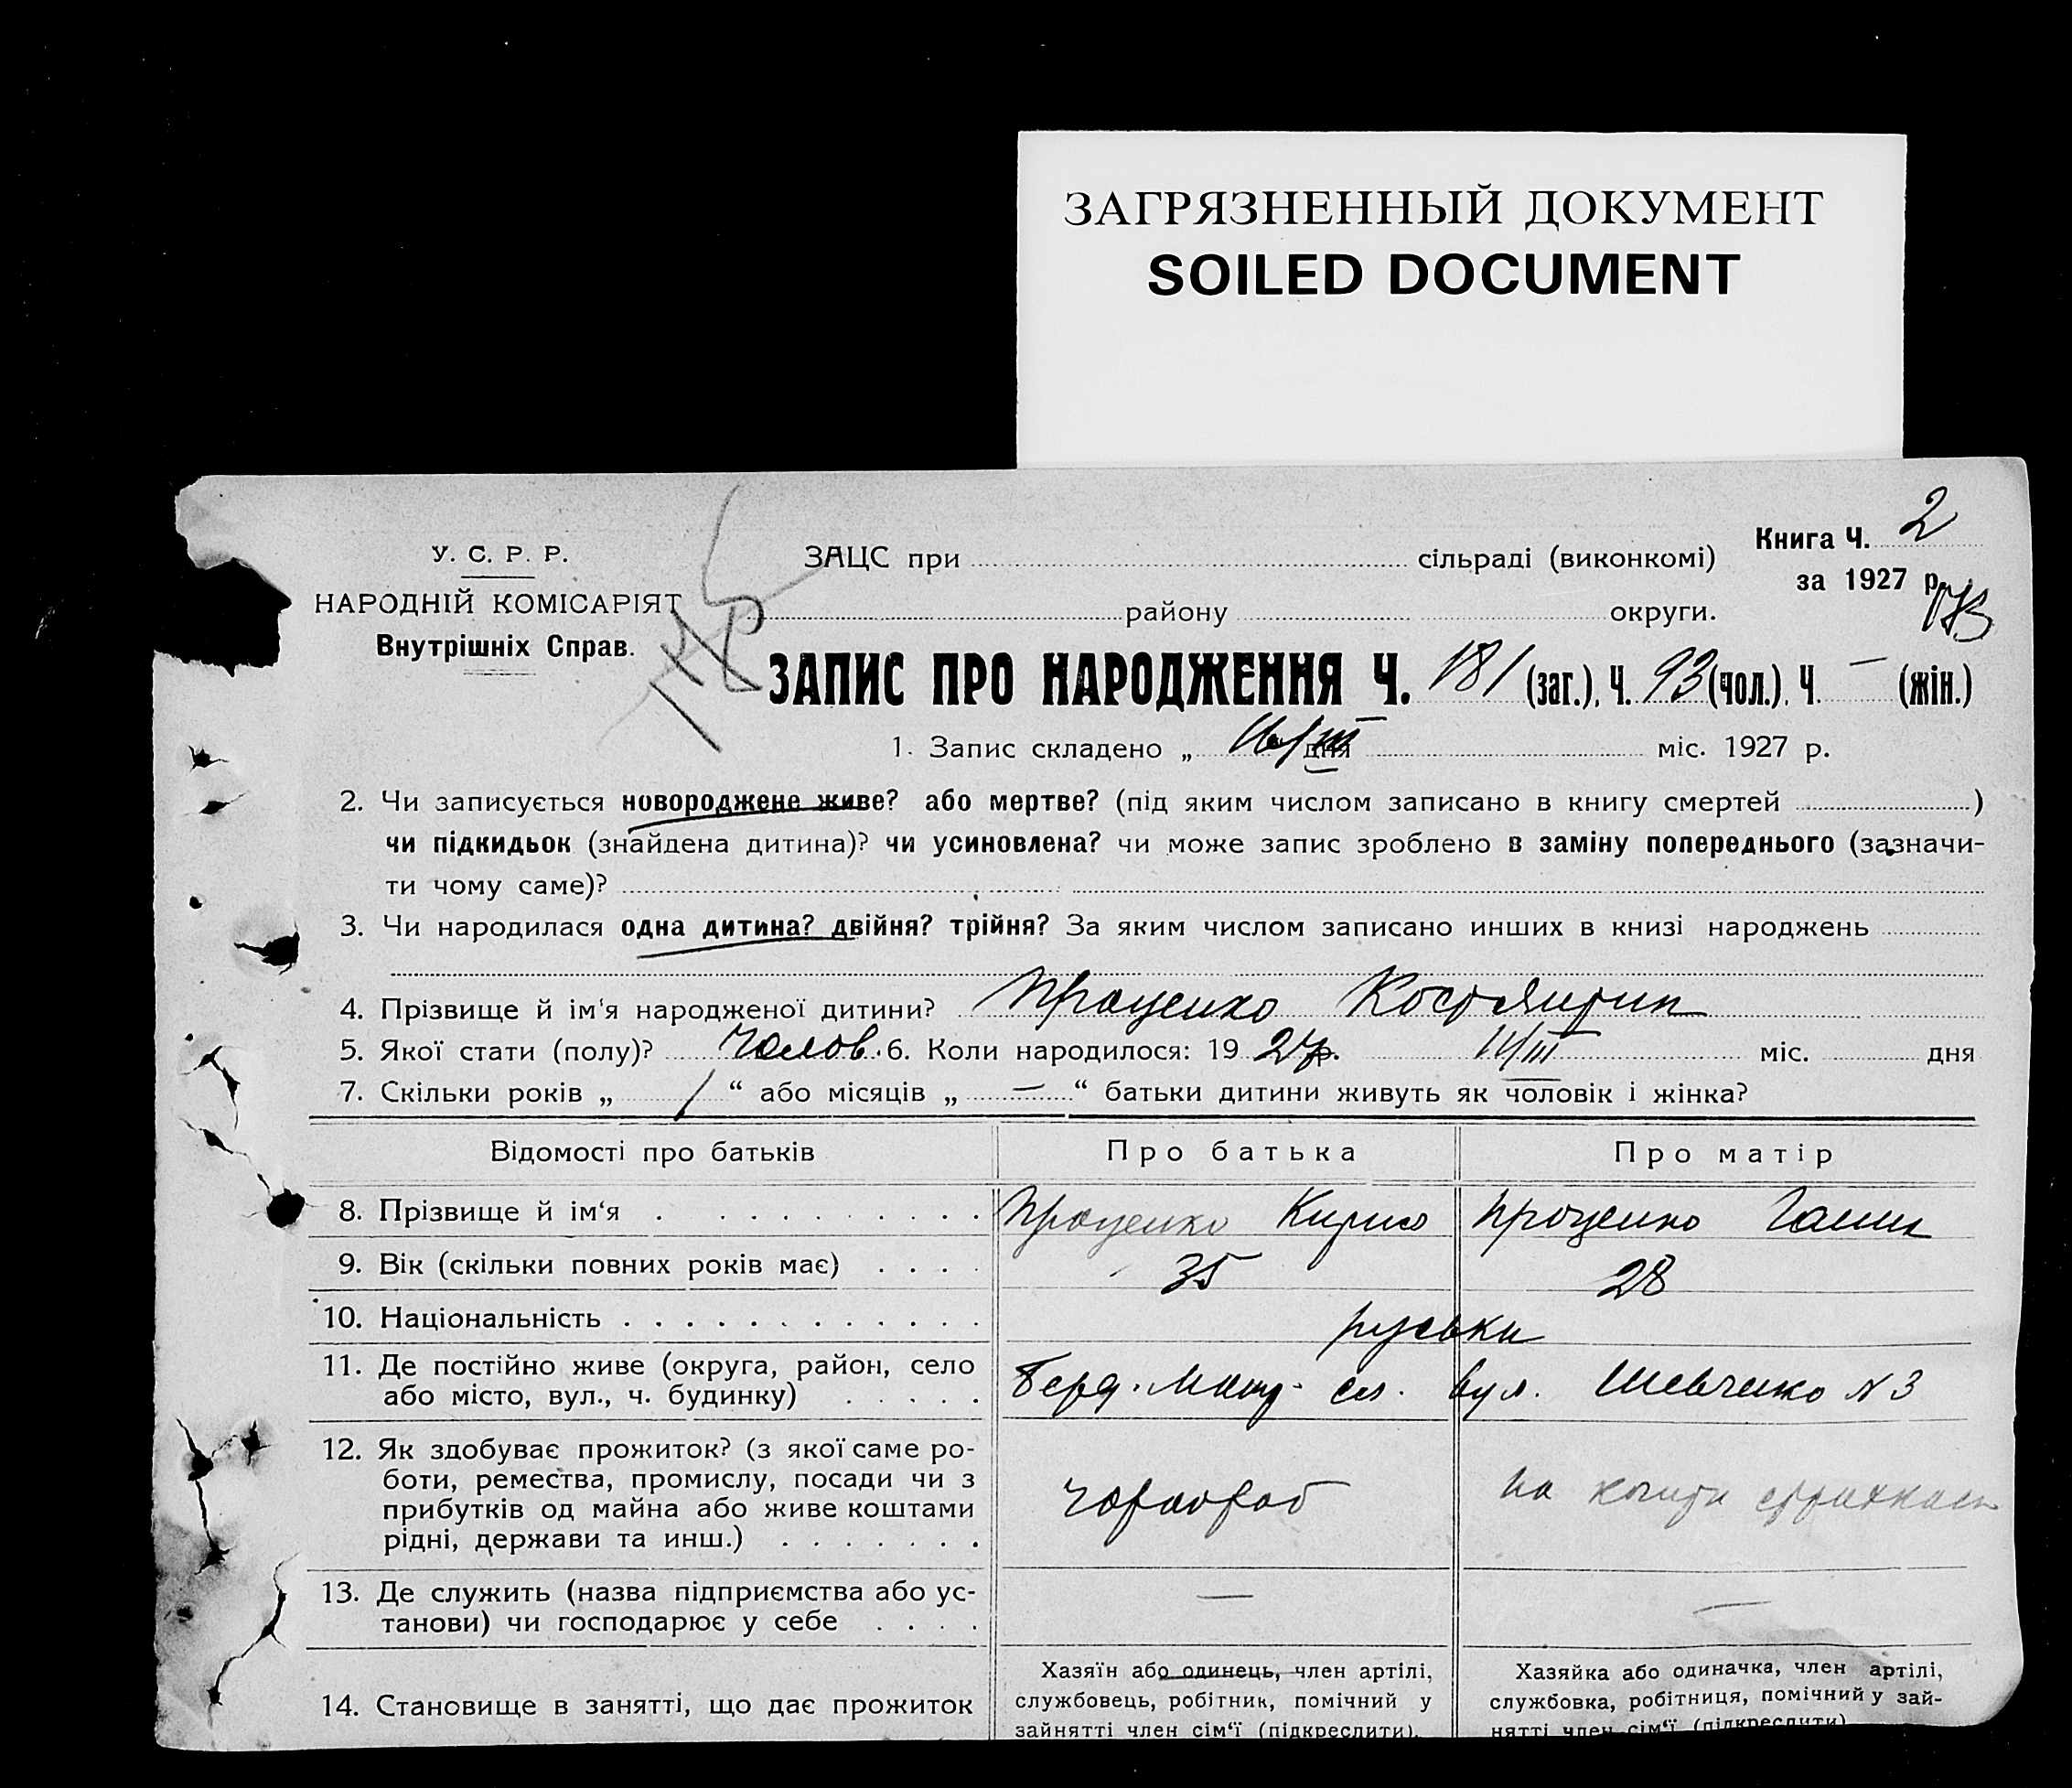 ЗАГРЯЗНЕННЫЙ ДОКУМЕНТ
SOILED DOCUMENT
Книга Ч. 2
У. С. Р. Р.
ЗАЦС при сільраді (виконкомі)
за 1927 р.
НАРОДНІЙ КОМІСАРІЯТ
району округи.
Внутрішніх Справ.
ЗАПИС ПРО НАРОДЖЕННЯ Ч. 181 (заг.), Ч. 93 (чол.), Ч. — (жін.)
1. Запис складено „ 16/III дня міс. 1927 р.
2. Чи записується новороджене живе? або мертве? (під яким числом записано в книгу смертей )
чи підкидьок (знайдена дитина)? чи усиновлена? чи може запис зроблено в заміну попереднього (зазначи-
ти чому саме)?
3. Чи народилася одна дитина? двійня? трійня? За яким числом записано инших в книзі народжень
4. Прізвище й ім'я народженої дитини? Проценко Костянтин
5. Якої стати (полу)? Чолов. 6. Коли народилося: 19 27 р. 14/III міс. дня
7. Скільки років „ 1 “ або місяців „ — “ батьки дитини живуть як чоловік і жінка?
Відомості про батьків Про батька Про матір
8. Прізвище й ім'я Проценко Кирило Проценко Ганна
9. Вік (скільки повних років має) 35 28
10. Національність руськи
11. Де постійно живе (округа, район, село
або місто, вул., ч. будинку) Берд. сел. вул. Шевченко № 3
12. Як здобуває прожиток? (з якої саме ро-
боти, ремества, промислу, посади чи з
прибутків од майна або живе коштами
рідні, держави та инш.)
чорнороб на кошти
13. Де служить (назва підприємства або ус-
танови) чи господарює у себе — —
14. Становище в занятті, що дає прожиток
Хазяїн або одинець, член артілі,
службовець, робітник, помічний у
зайнятті член сім'ї (підкреслити).
Хазяйка або одиначка, член артілі,
службовка, робітниця, помічний у зай-
нятті член сім'ї (підкреслити)